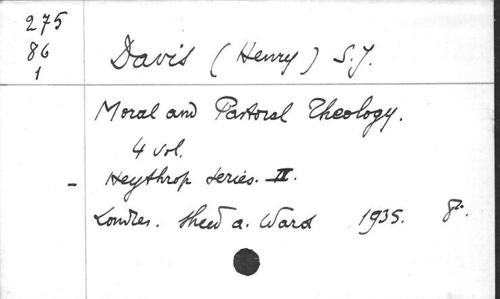 275
86
1
Davis (Henry) S.J.
Moral and Pastoral Theology.
4 vol.
- Heythrop series. II.
Londres. Sheed a. Ward 1935. 8°.